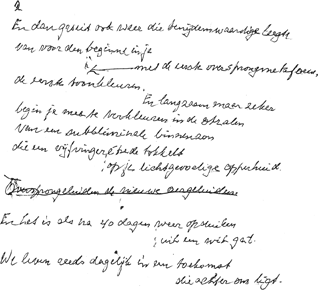 En dan gebeurt ook weer die benijdenswaardige leegte
van voor den beginne in je
met de eerste oversprongmetaforen,
de eerste toonkleuren.
En langzaam maar zeker
begin je mee te verkleuren in de stralen
van een subliminale binnenzon
die een vijfvingerige tokkelt
op je lichtgevoelige opperhuid.
de nieuwe
En het is als na 40 dagen weer opduiken
uit een wit gat.
We leven reeds dagelijks in een toekomst
die achter ons ligt.